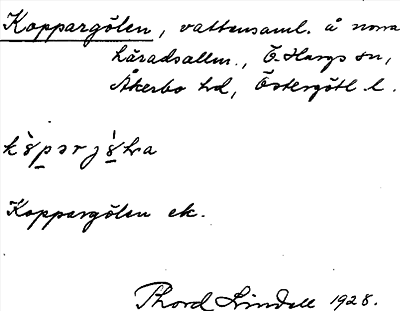 Koppargölen, vattensaml. å norra
häradsallm., Ö. Hargs sn,
Åkerbo hd, Östergötl. l.
Koppargölen ek.
Thord Lindell 1928.